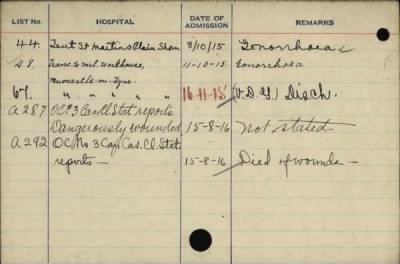 LIST No. HOSPITAL DATE OF ADMISSION REMARKS
44. Tent St Martins Plain Shorn 8/10/15 Gonorrhoea
48. Trans. to mil. workhouse, 11-10-15 Gonorrhoea
Newcastle-on-Tyne.
67. " " " " 16-11-15 (V.D.G.) Disch.
A 287 OC 3 Cas Cl Stat reports
Dangerously wounded 15-8-16 not stated
A 292 OC No 3 Can. Cas. Cl. Stat.
reports — 15-8-16 Died of wounds —